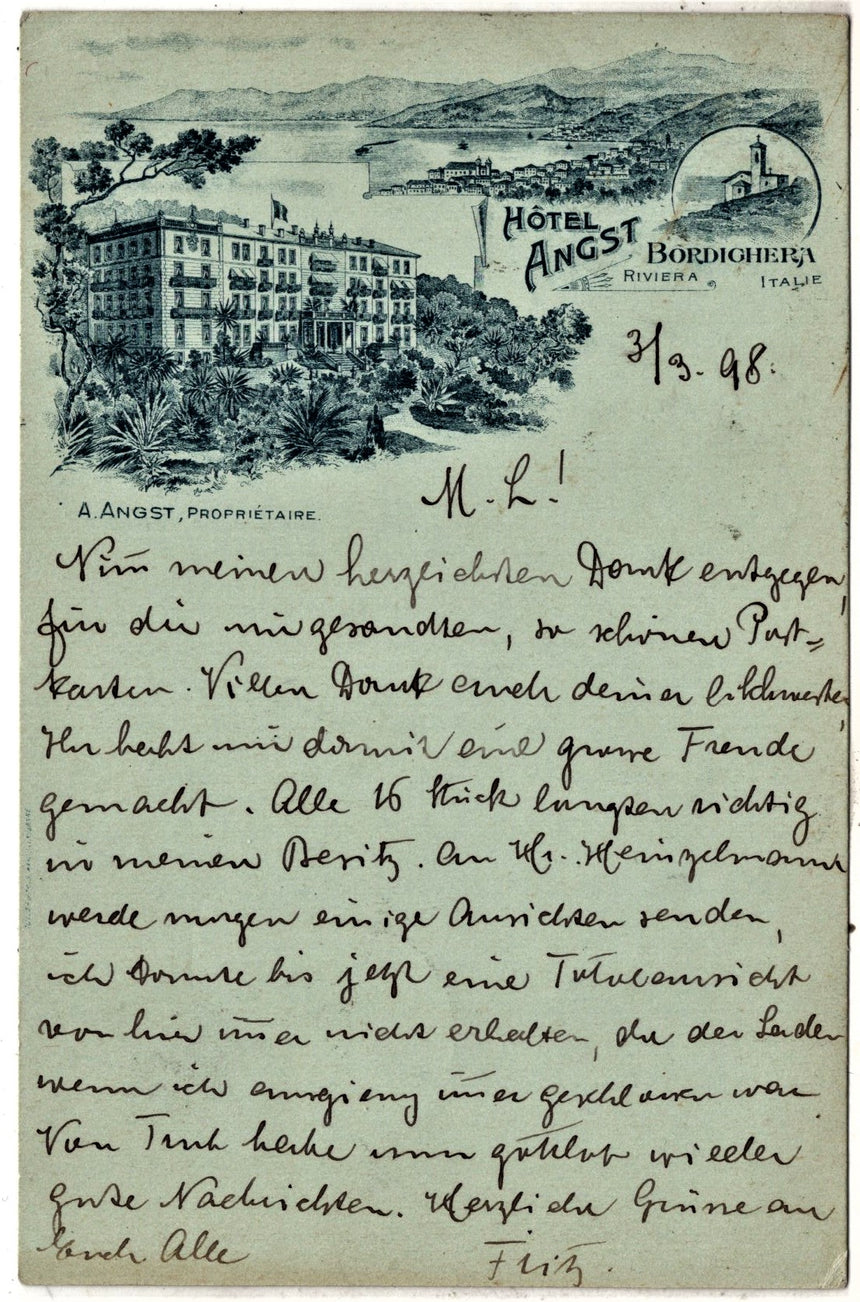 HÔTEL
ANGST
BORDIGHERA
RIVIERA
ITALIE
3/3. 98.
A. ANGST, PROPRIÉTAIRE.
M. L!
Nim̄ meinen herzlichsten Dank entgegen,
für die mir gesandten, so schönen Post=
karten. Vielen Dank auch deiner
Ihr habt mir damit eine grosse Freude
gemacht. Alle 16 Stück langten richtig
in meinen Besitz. An Hr. Heinzelmann
werde morgen einige Ansichten senden,
ich konnte bis jetzt eine Totalansicht
von hier im̄er nicht erhalten, da der Laden
wenn ich ausgieng im̄er geschlossen war
Von habe nun gottlob wieder
gute Nachrichten. Herzliche Grüsse an
Euch Alle Fritz.